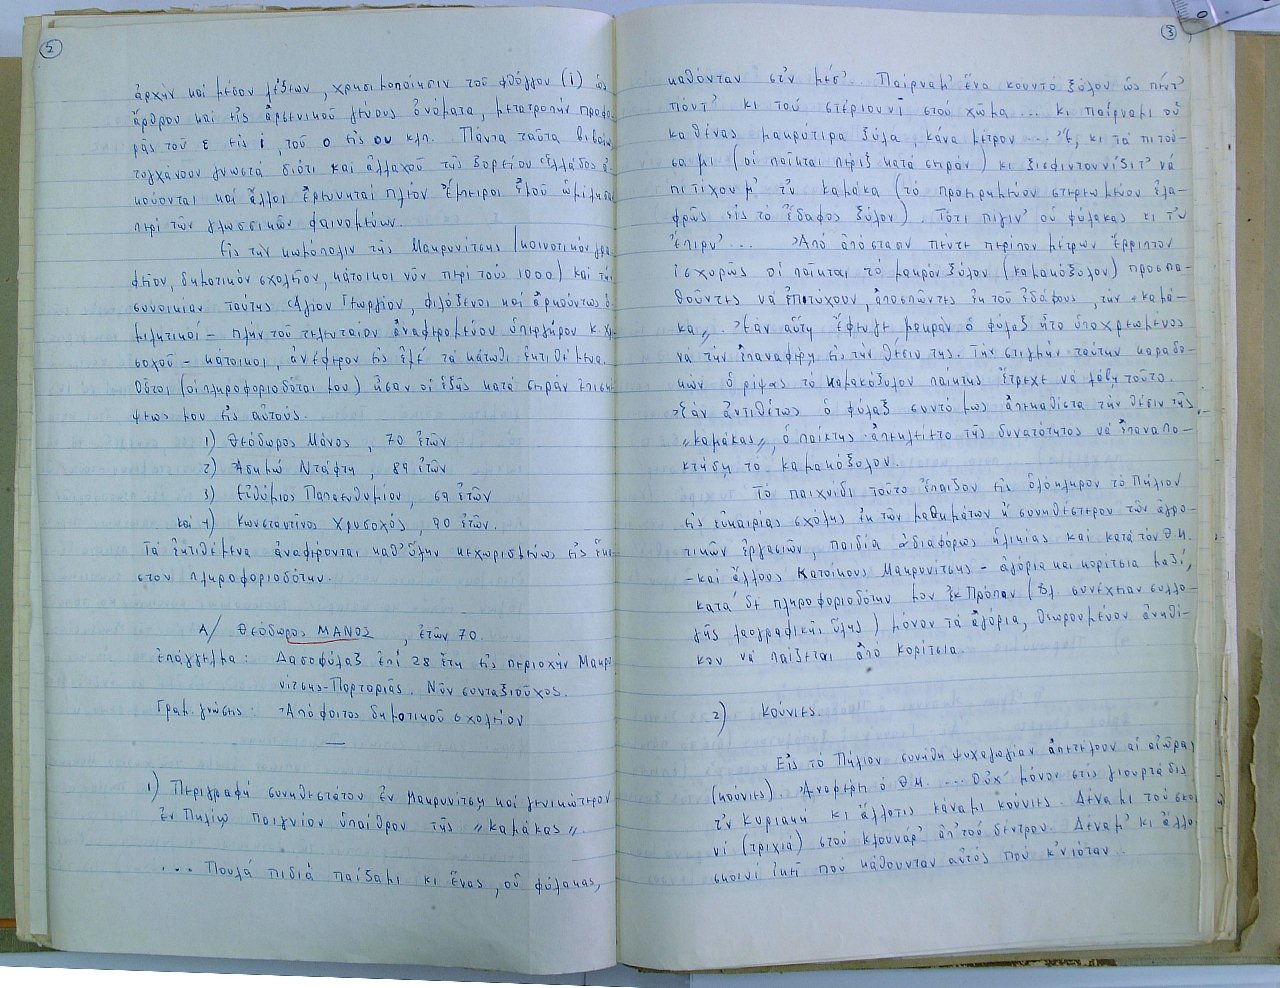 2
ἀρχὴν καὶ μέσον λέξεων, χρησιμοποίησιν τοῦ φθόγγου (i) ὡς
ἄρθρου καὶ εἰς ἀρσενικοῦ γένους ὀνόματα, μετατροπὴν προφο-
ρᾶς τοῦ ε εἰς i, τοῦ ο εἰς ου κλπ. Πάντα ταῦτα βεβαίως
τυγχάνουν γνωστὰ διότι καὶ ἀλλαχοῦ τῆς βορείου Ἑλλάδος ἀ-
κούονται καὶ ἄλλοι ἐρευνηταὶ πλέον ἔμπειροι ἐμοῦ ὡμίλησαν
περὶ τῶν γλωσσικῶν φαινομένων.
Εἰς τὴν κωμόπολιν τῆς Μακρυνίτσης (κοινοτικὸν γρα-
φεῖον, δημοτικὸν σχολεῖον, κάτοικοι νῦν περὶ τοὺς 1000) καὶ τὴν
συνοικίαν ταύτης Ἁγίου Γεωργίου, φιλόξενοι καὶ ἀρκούντως ὁ-
μιλητικοί - πλὴν τοῦ τελευταίου ἀναφερομένου ὑπεργήρου κ. Χρυ-
σοχοῦ - κάτοικοι, ἀνέφερον εἰς ἐμὲ τὰ κάτωθι ἐκτιθέμενα.
Οὗτοι (οἱ πληροφοριοδόται μου) ἦσαν οἱ ἑξῆς κατὰ σειρὰν ἐπισκέ-
ψεώς μου εἰς αὐτούς.
1) Θεόδωρος Μάνος, 70 ἐτῶν
2) Ἀσημώ Ντάφτη, 89 ἐτῶν
3) Εὐθύμιος Παπαευθυμίου, 69 ἐτῶν
καὶ 4) Κωνσταντῖνος Χρυσοχός, 90 ἐτῶν.
Τὰ ἐκτιθέμενα ἀναφέρονται καθ' ὕλην κεχωρισμένως εἰς ἕκα-
στον πληροφοριοδότην.
Α/ Θεόδωρος ΜΑΝΟΣ, ἐτῶν 70.
Ἐπάγγελμα: Δασοφύλαξ ἐπὶ 28 ἔτη εἰς περιοχὴν Μακρυ-
νίτσης-Πορταριᾶς. Νῦν συνταξιοῦχος.
Γραμ. γνώσεις: Ἀπόφοιτος δημοτικοῦ σχολείου
1) Περιγραφὴ συνηθεστάτου ἐν Μακρυνίτσῃ καὶ γενικώτερον
ἐν Πηλίῳ παιγνίου ὑπαίθρου τῆς "καμάκας".
... Πουλά πιδιά παίζαμι κι ἕνας, οὗ φύλακας,
3
καθόνταν στ'ν μέσ'. Παίρναμ' ἕνα κουντό ξύλου ὡς πέντ'
πόντ' κι τοὺ στέριουνι στοὺ χῶμα ... κι παίρναμι οὗ
καθένας μακρύτιρα ξύλα, κάνα μέτρου ... κι τὰ πιτού-
σαμι (οἱ παῖκται πέριξ κατὰ σειράν) κι ξισφιντουνίζιτ' νὰ
πιτύχουμ' τ'ν καμάκα (τὸ προειρημένον στερεωμένον ἐλα-
φρῶς εἰς τὸ ἔδαφος ξύλον). Τότι πίγιν' οὗ φύλακας κι τ'ν
ἔπιρν' ... Ἀπὸ ἀπόστασιν πέντε περίπου μέτρων ἔρριπτον
ἰσχυρῶς οἱ παῖκται τὸ μακρὸν ξύλον (καμακόξυλον) προσπα-
θοῦντες νὰ ἐπιτύχουν, ἀποσπῶντες ἐκ τοῦ ἐδάφους, τὴν "καμά-
κα". Ἐὰν αὕτη ἔφευγε μακρὰν ὁ φύλαξ ἦτο ὑποχρεωμένος
νὰ τὴν ἐπαναφέρῃ εἰς τὴν θέσιν της. Τὴν στιγμὴν ταύτην καραδο-
κῶν ὁ ρίψας τὸ καμακόξυλον παίκτης ἔτρεχε νὰ λάβῃ τοῦτο.
Ἐὰν ἀντιθέτως ὁ φύλαξ συντόμως ἀπεκαθίστα τὴν θέσιν τῆς
"καμάκας", ὁ παίκτης ἀπεκλείετο τῆς δυνατότητος νὰ ἐπαναπο-
κτήσῃ τὸ καμακόξυλον.
Τὸ παιχνίδι τοῦτο ἔπαιζον εἰς ὁλόκληρον τὸ Πήλιον
εἰς εὐκαιρίας σχόλης ἐκ τῶν μαθημάτων ἢ συνηθέστερον τῶν ἀγρο-
τικῶν ἐργασιῶν, παιδία ἀδιαφόρως ἡλικίας καὶ κατὰ τὸν Θ.Μ.
- καὶ ἄλλους κατοίκους Μακρυνίτσης - ἀγόρια καὶ κορίτσια μαζί,
κατὰ δὲ πληροφοριοδότην μου ἐκ Πρόπαν (βλ. συνέχειαν συλλο-
γῆς λαογραφικῆς ὕλης) μόνον τὰ ἀγόρια, θεωρουμένου ἀνηθί-
κου νὰ παίζεται ἀπὸ κορίτσια.
2) Κούνιες.
Εἰς τὸ Πήλιον συνήθη ψυχαγωγίαν ἀπετέλουν αἱ αἰῶραι
(κούνιες). Ἀναφέρει ὁ Θ.Μ. ... Οὐχ' μόνου στὶς γιουρτάδις
τ'ν Κυριακή κι ἄλλοτις κάναμι κούνιες. Δέναμι τοὺ σκοι-
νί (τριχιά) στοὺ κλουνάρ' ἀπ' τοὺ δέντρου. Δέναμ' κι ἄλλου
σκοινί ἰκεῖ ποὺ κάθουνταν αὐτὸς ποὺ κ'νιόταν.